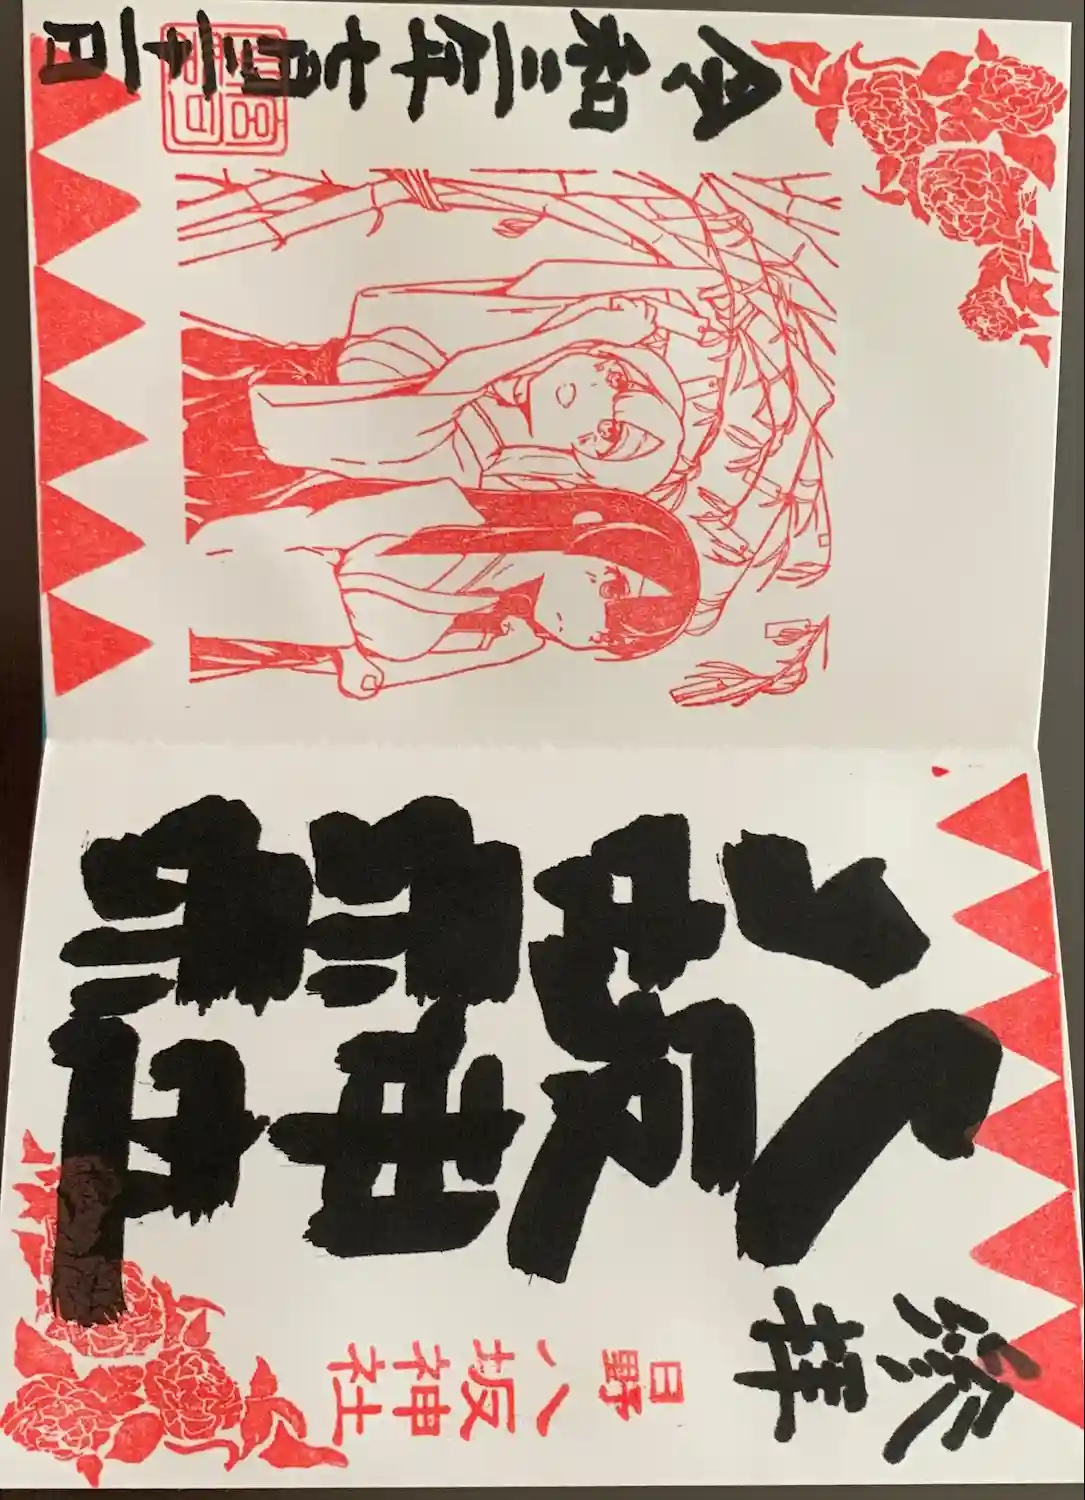 参拝
日野八坂神社
八坂神社
令和三年七月二十一日